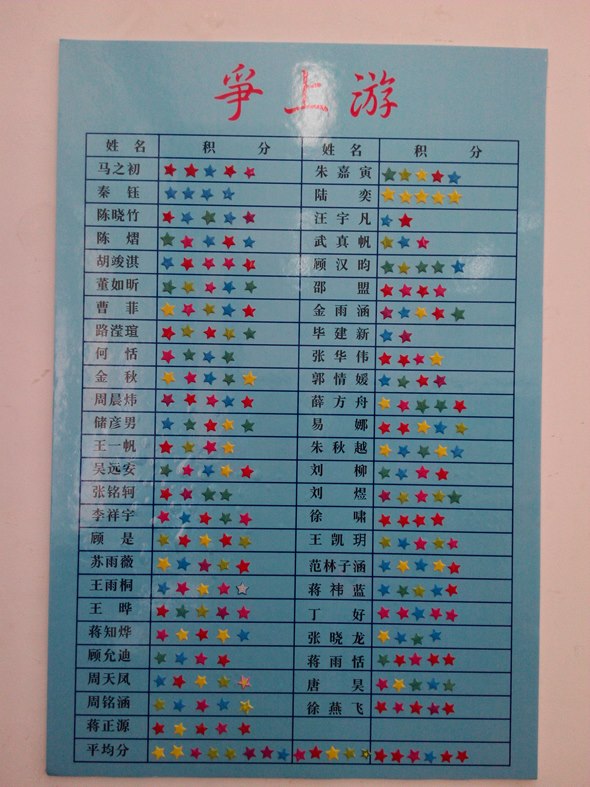 爭上游
姓 名 积 分 姓 名 积 分
马之初 朱嘉寅
秦 钰 陆 奕
陈晓竹 汪宇凡
陈 熠 武真帆
胡竣淇 顾汉昀
董如昕 邵 盟
曹 菲 金雨涵
路滢瑄 毕建新
何 恬 张华伟
金 秋 郭情媛
周晨炜 薛方舟
储彦男 易 娜
王一帆 朱秋越
吴远安 刘 柳
张铭轲 刘 煜
李祥宇 徐 啸
顾 是 王凯玥
苏雨薇 范林子涵
王雨桐 蒋祎蓝
王 晔 丁 好
蒋知烨 张晓龙
顾允迪 蒋雨恬
周天凤 唐 昊
周铭涵 徐燕飞
蒋正源
平均分